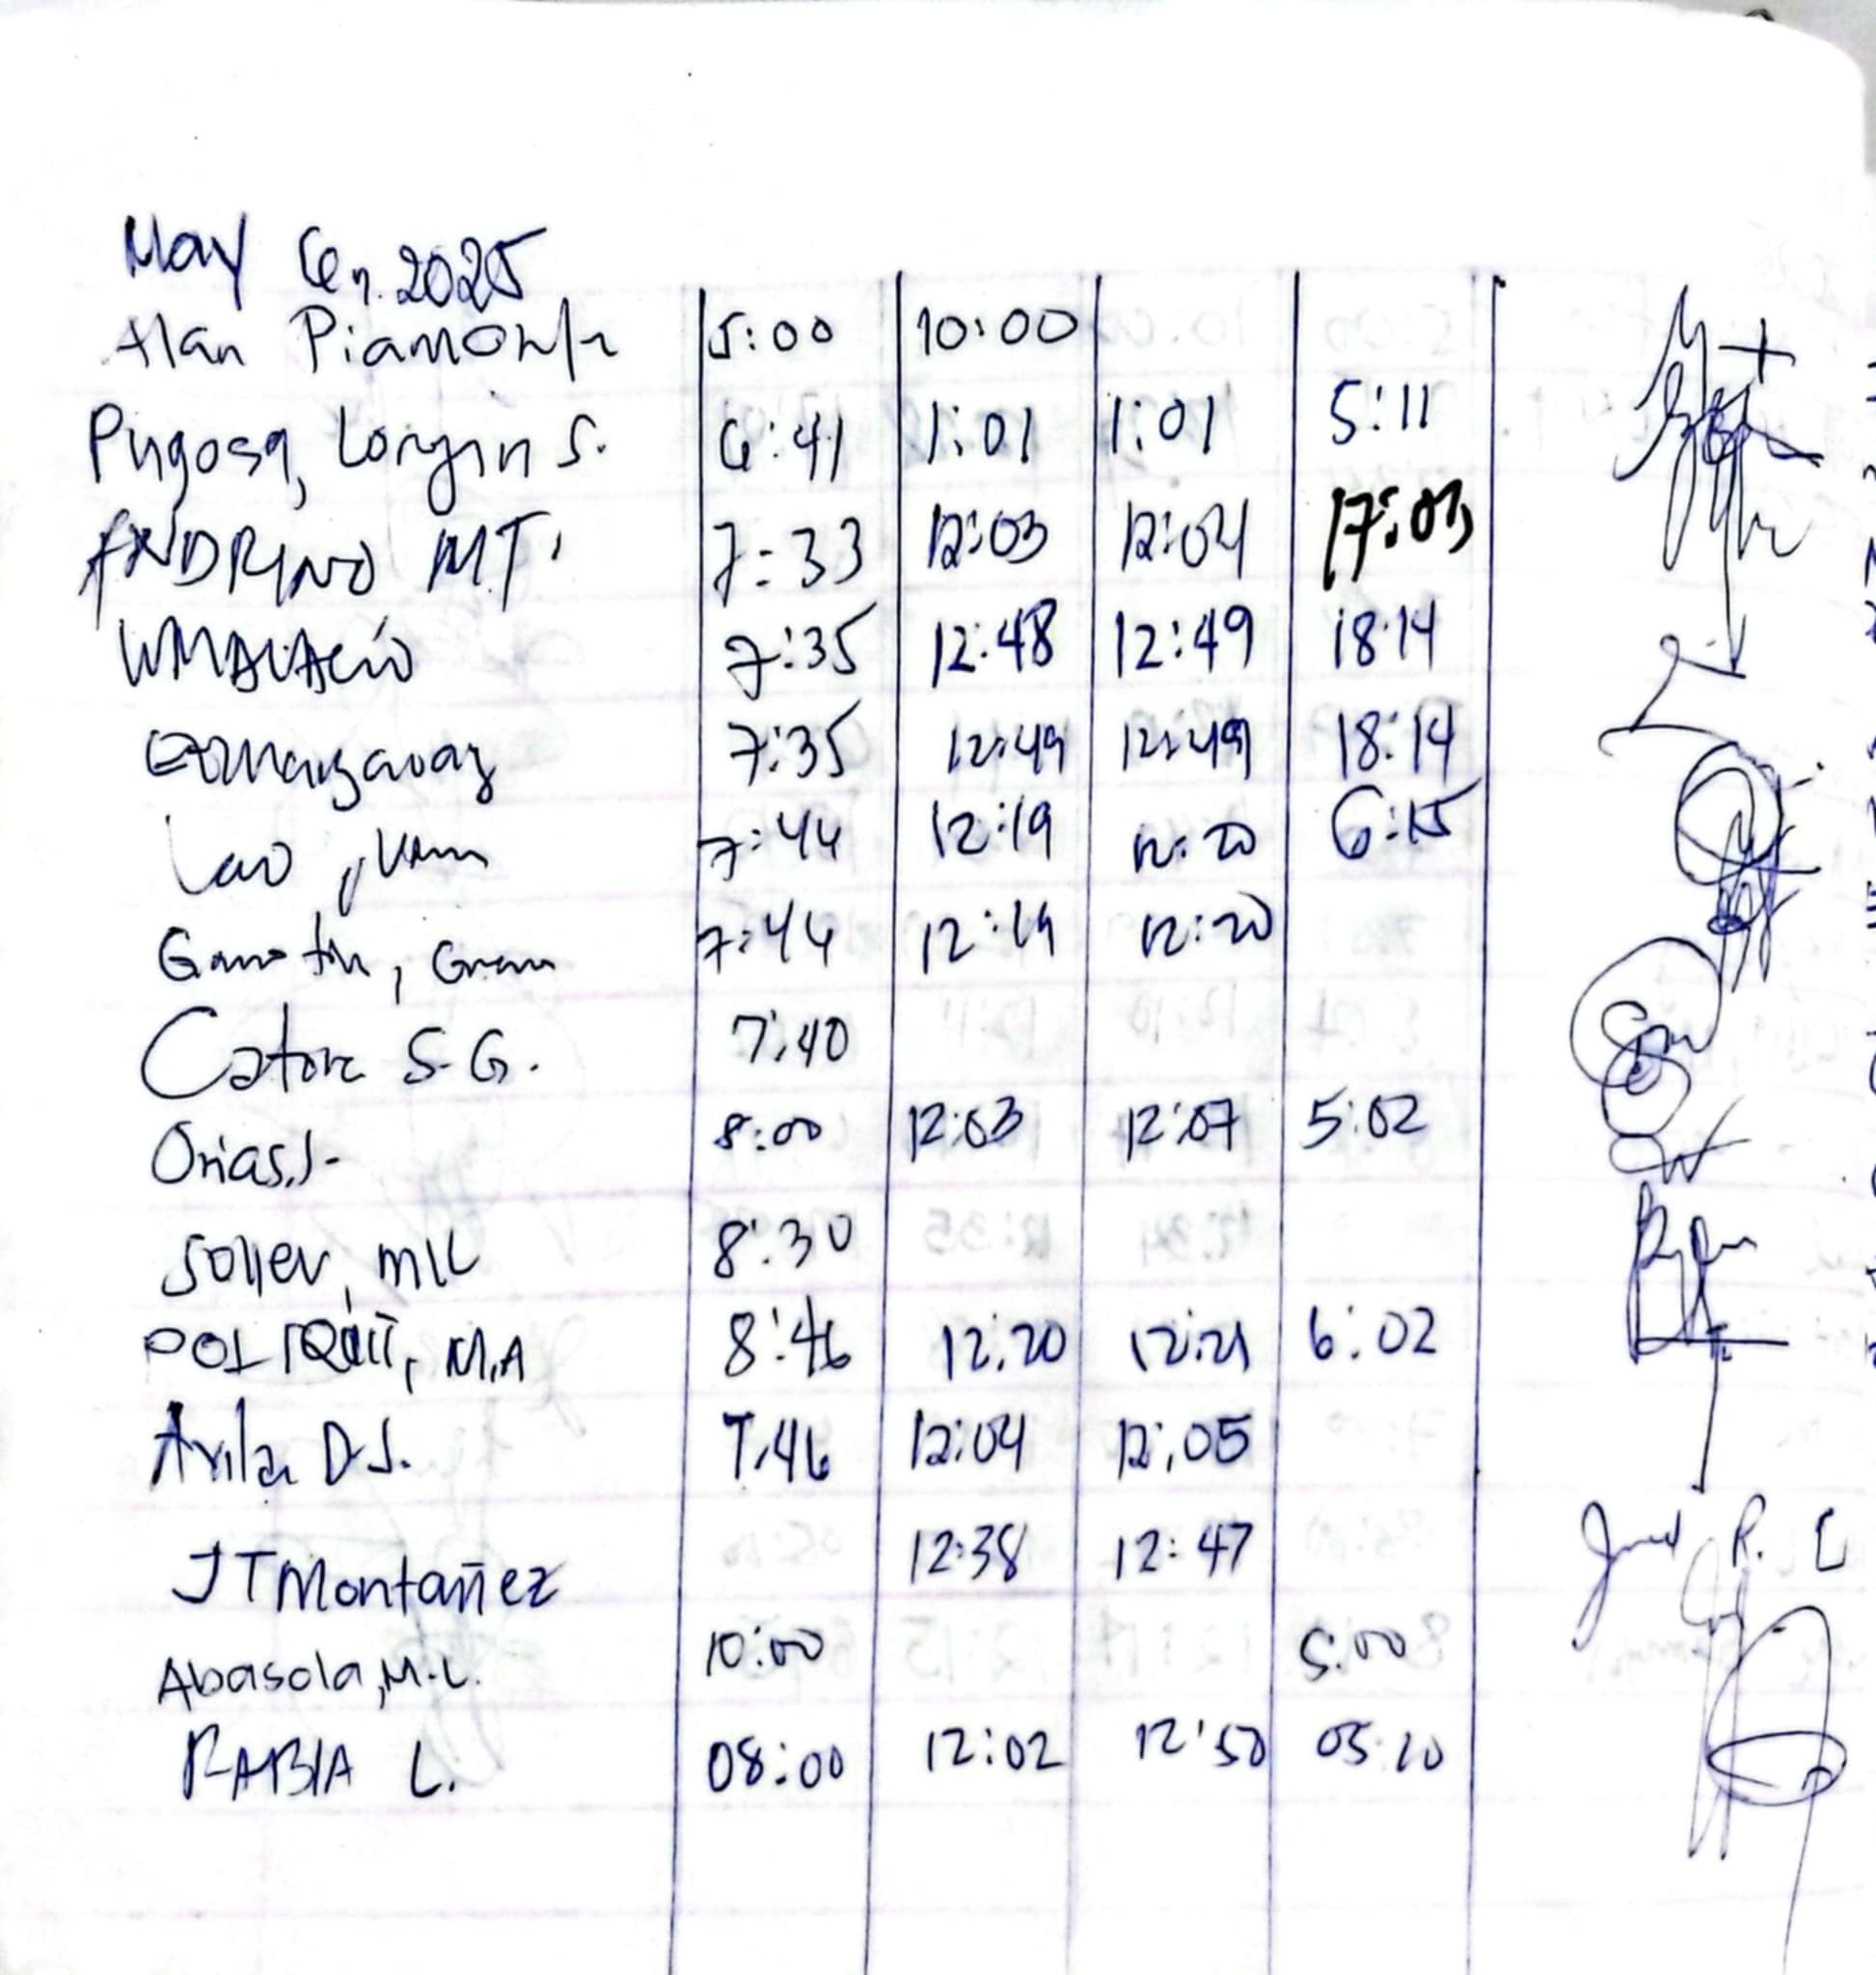 May 6, 2025
Alan Piamonte 5:00 10:00
Pugosa, Longin S. 6:41 1:01 1:01 5:11
ANDRINO MT. 7:33 12:03 12:04 17:03
7:35 12:48 12:49 18:14
7:35 12:49 12:49 18:14
Lao, 7:44 12:19 12:20 6:15
7:44 12:19 12:20
Catore S.G. 7:40
Orias, J. 8:00 12:03 12:07 5:02
Soller, 8:30
POLIQUIT, M.A 8:46 12:20 12:21 6:02
Avila D.J. 7:46 12:04 12:05
JTMontañez 12:38 12:47
Abasola, M.L. 10:00 5:00
RABIA L. 08:00 12:02 12:50 05:10